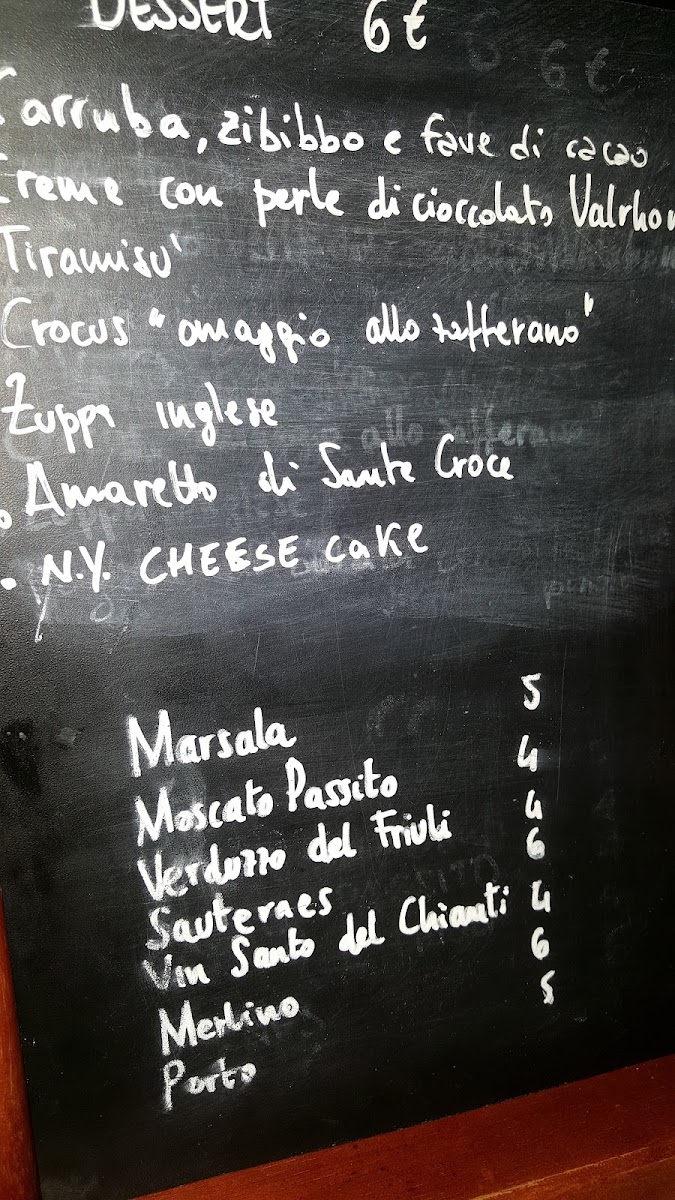 DESSERT 6€
Carruba, zibibbo e fave di cacao
Creme con perle di cioccolato Valrhon
Tiramisu'
Crocus "omaggio allo zafferano"
Zuppa inglese
Amaretto di Sante Croce
• N.Y. CHEESE CAKE
Marsala 5
Moscato Passito 4
Verduzzo del Friuli 4
Sauternes 6
Vin Santo del Chianti 4
Merlino 6
Porto 5